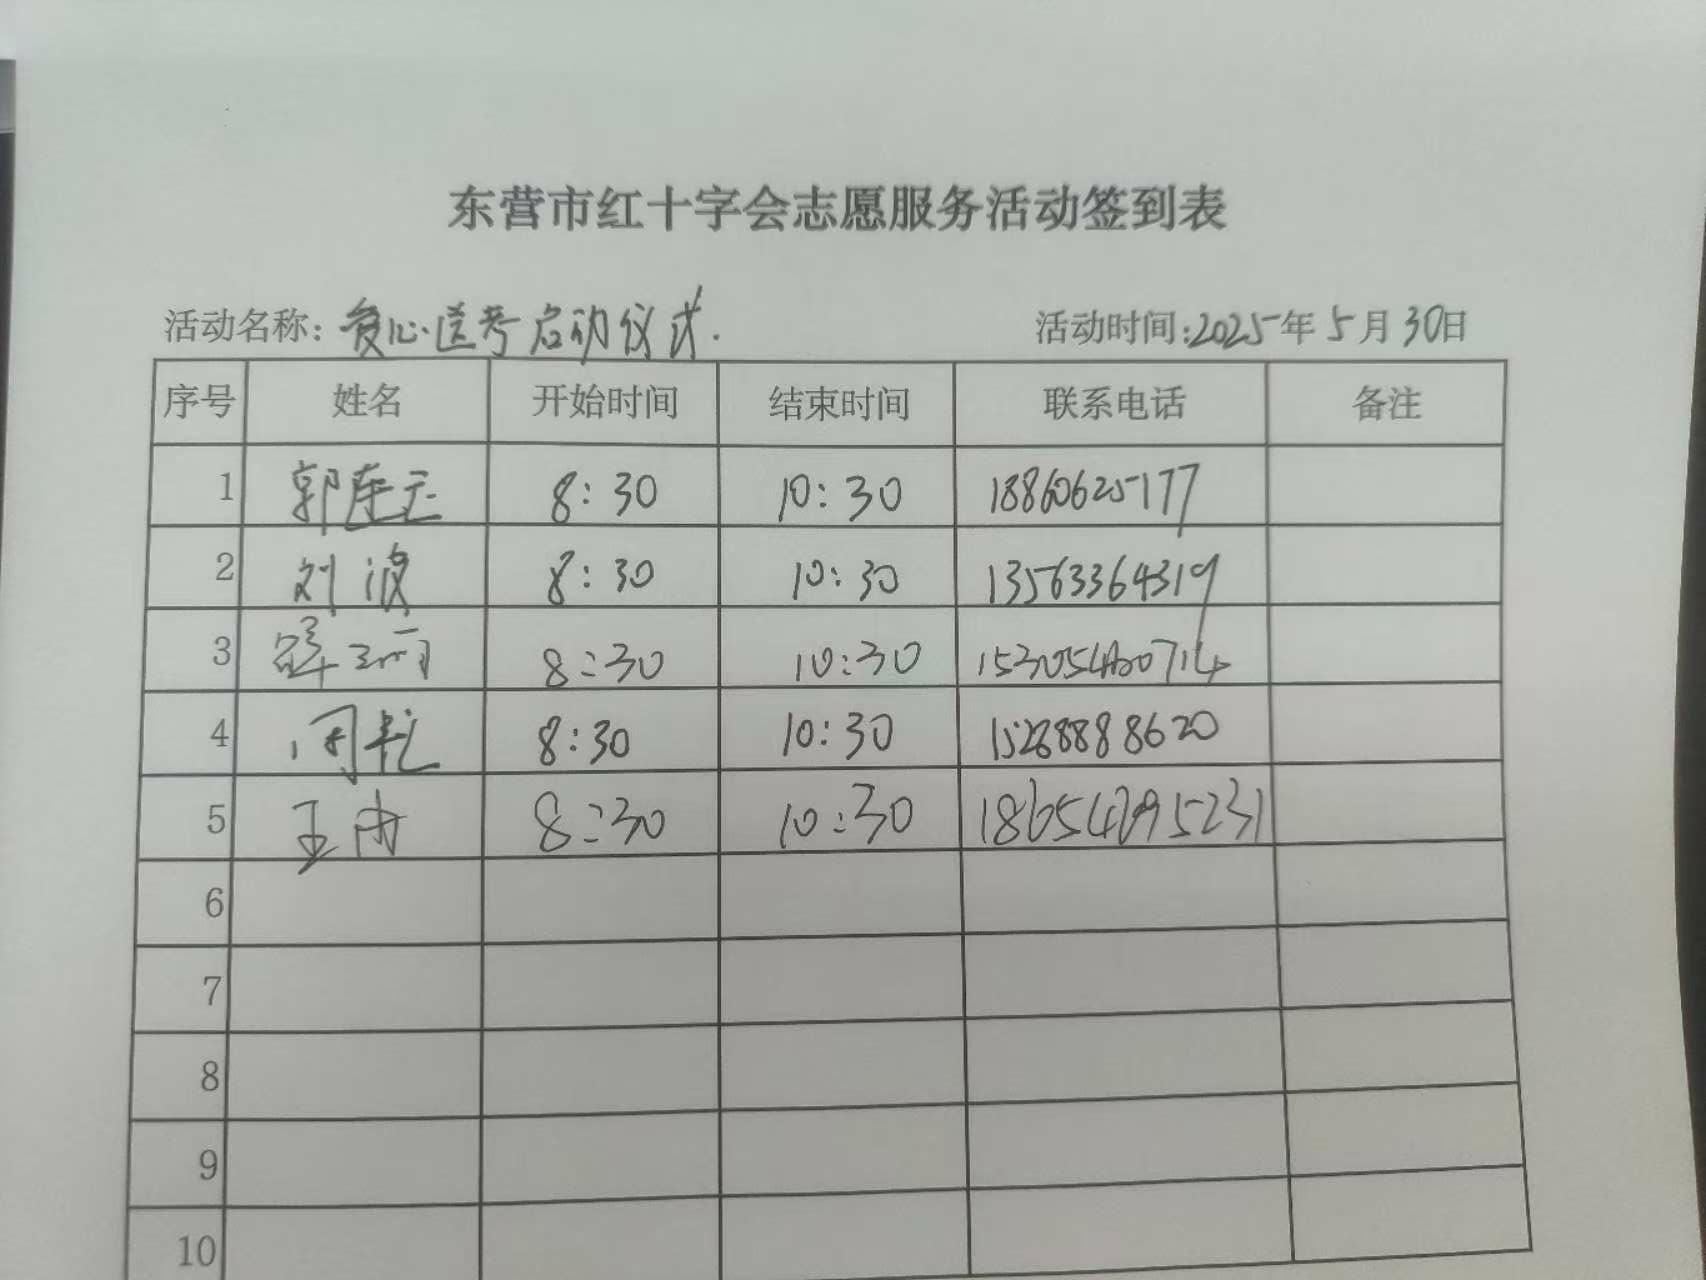 东营市红十字会志愿服务活动签到表
活动名称：爱心送考启动仪式. 活动时间：2025年5月30日
序号 姓名 开始时间 结束时间 联系电话 备注
1 郭连玉 8:30 10:30 18860625177
2 刘波 8:30 10:30 13563364319
3 薛 8:30 10:30
4 周 8:30 10:30 15288888620
5 王雨 8:30 10:30
6
7
8
9
10